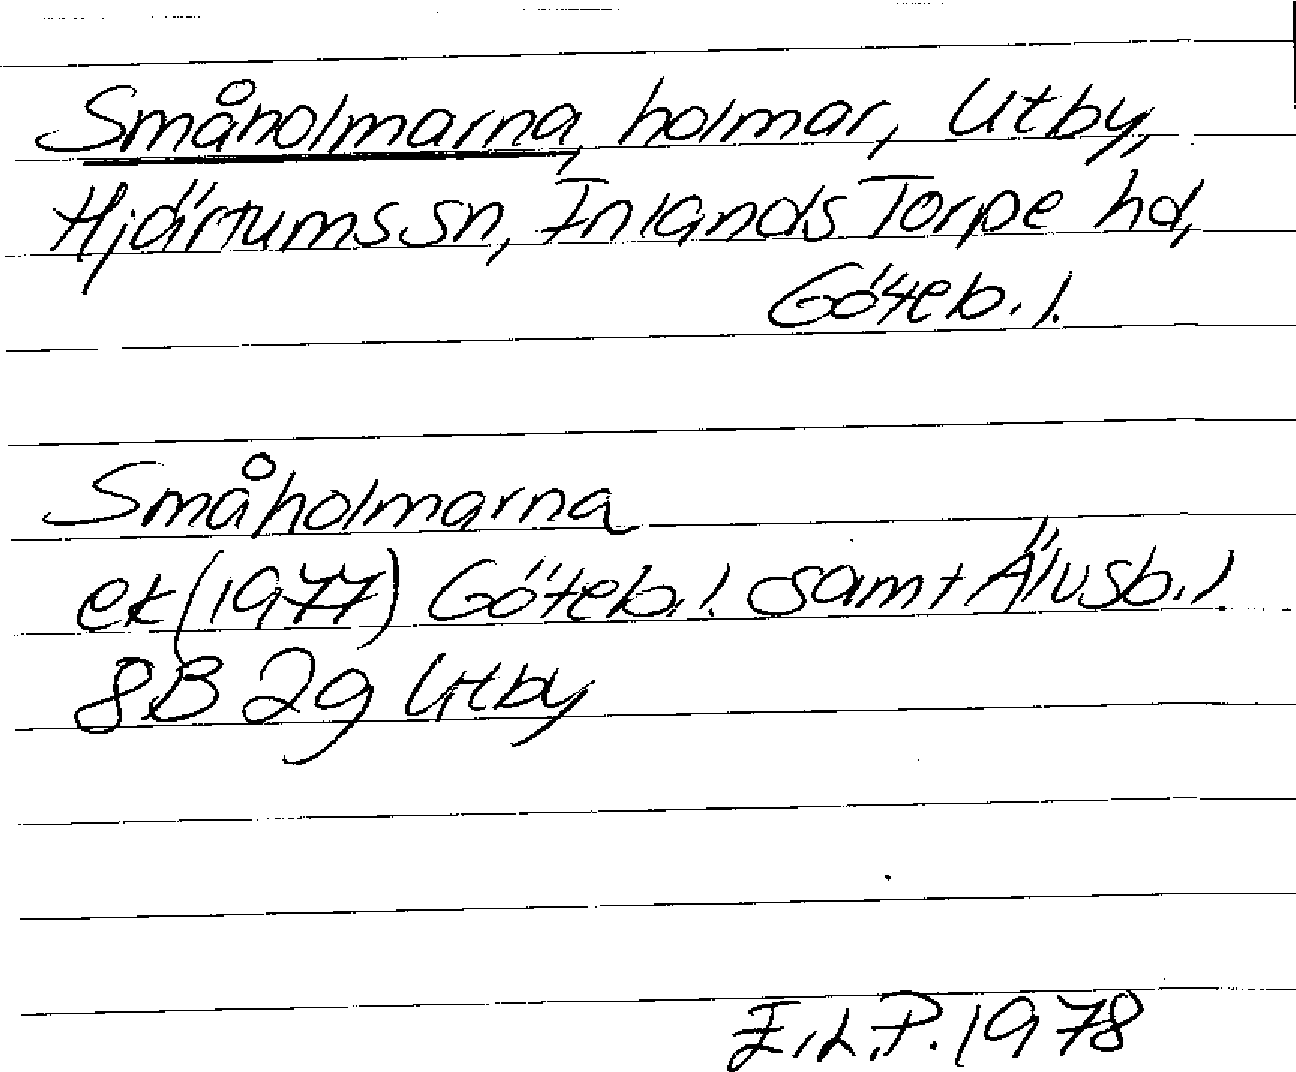 Småholmarna, holmar, Utby,
Hjärtums sn, Inlands Torpe hd,
Göteb. l.
Småholmarna
ek (1977) Göteb. l. samt Älvsb. l.
8B 2g Utby
I.L.P. 1978